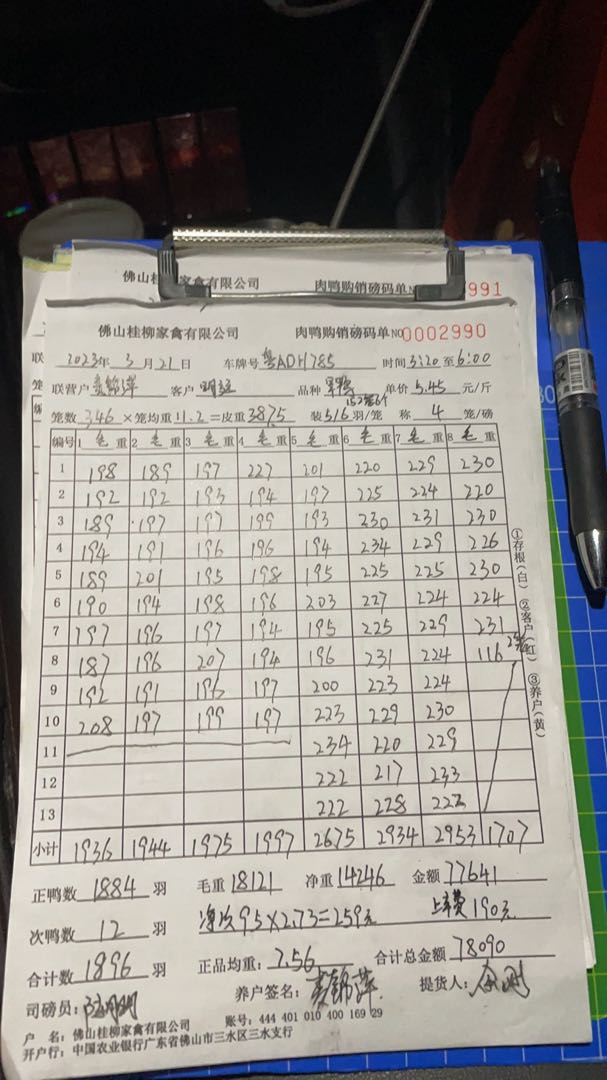 佛山桂柳家禽有限公司 肉鸭购销磅码单 991
佛山桂柳家禽有限公司 肉鸭购销磅码单 NO 0002990
2023年 3月 21日 车牌号 粤ADH785 时间 3:20 至 6:00
联营户 客户 品种 单价 5.45 元/斤
笼数 346 ×笼均重 11.2 =皮重 3875 装 5/6 羽/笼 称 4 笼/磅
编号 1 毛重 2 毛重 3 毛重 4 毛重 5 毛重 6 毛重 7 毛重 8 毛重
1 198 189 197 227 201 220 229 230
2 192 192 193 194 197 225 224 220
3 189 197 197 199 193 230 231 230
4 194 191 196 196 194 234 229 226
5 189 201 195 198 195 225 225 230
6 190 194 198 196 203 227 224 224
7 197 196 197 194 195 225 229 231
8 187 196 207 194 196 231 224 116 2笼
9 192 191 196 197 200 223 224
10 208 197 199 197 223 229 230
11 234 220 229
12 222 217 233
13 222 228 222
小计 1936 1944 1975 1997 2675 2934 2953 1707
①存根(白) ②客户(红) ③养户(黄)
正鸭数 1884 羽 毛重 18121 净重 14246 金额 77641
次鸭数 12 羽 净次95×2.73=259元 上车费190元
合计数 1896 羽 正品均重: 7.56 合计总金额 78090
司磅员: 养户签名: 提货人:
户 名: 佛山桂柳家禽有限公司 账号: 444 401 010 400 169 29
开户行: 中国农业银行广东省佛山市三水区三水支行